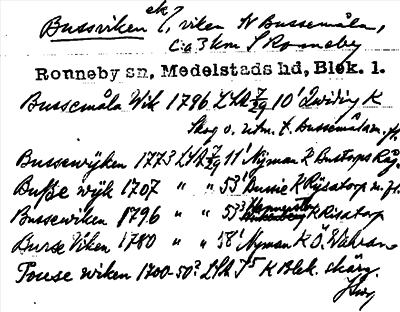 Bussviken ek?, viken N Bussemåla,
c:a 3 km S Ronneby
Ronneby sn, Medelstads hd, Blek. l.
Bussemåla Wik 1796 LSA 7/29 10¹ Qwiding K
Skog o. utm. t. Bussemåla m.fl.
Bussewijken 1773 LSA 7/29 11¹ Nyman K Bustorps Räg.
Busse wijk 1707 " " 53¹ Bussie K Risatorp m.fl.
Bussewiken 1796 " " 53³ K Risatorp
Busse Viken 1780 " " 58¹ Nyman K Ö.
Pouse wiken 1700-50? LSA K Blek. skärg.